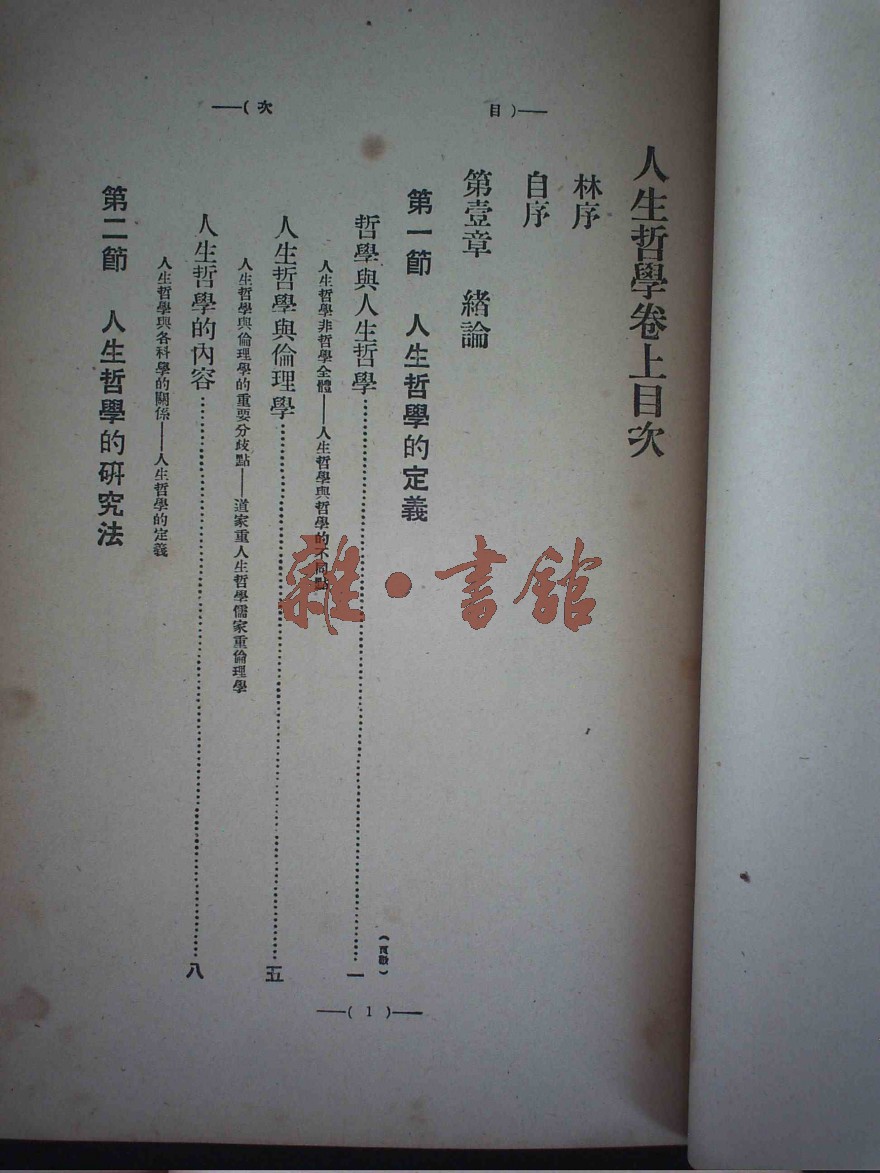 ——( 目
次 )——
人生哲學卷上目次
林序
自序
第壹章　緒論
第一節　人生哲學的定義
(頁數)
哲學與人生哲學……一
人生哲學非哲學全體——人生哲學與哲學的不同點
人生哲學與倫理學……五
人生哲學與倫理學的重要分歧點——道家重人生哲學儒家重倫理學
人生哲學的內容……八
人生哲學與各科學的關係——人生哲學的定義
第二節　人生哲學的研究法
——( 1 )——
雜·書館